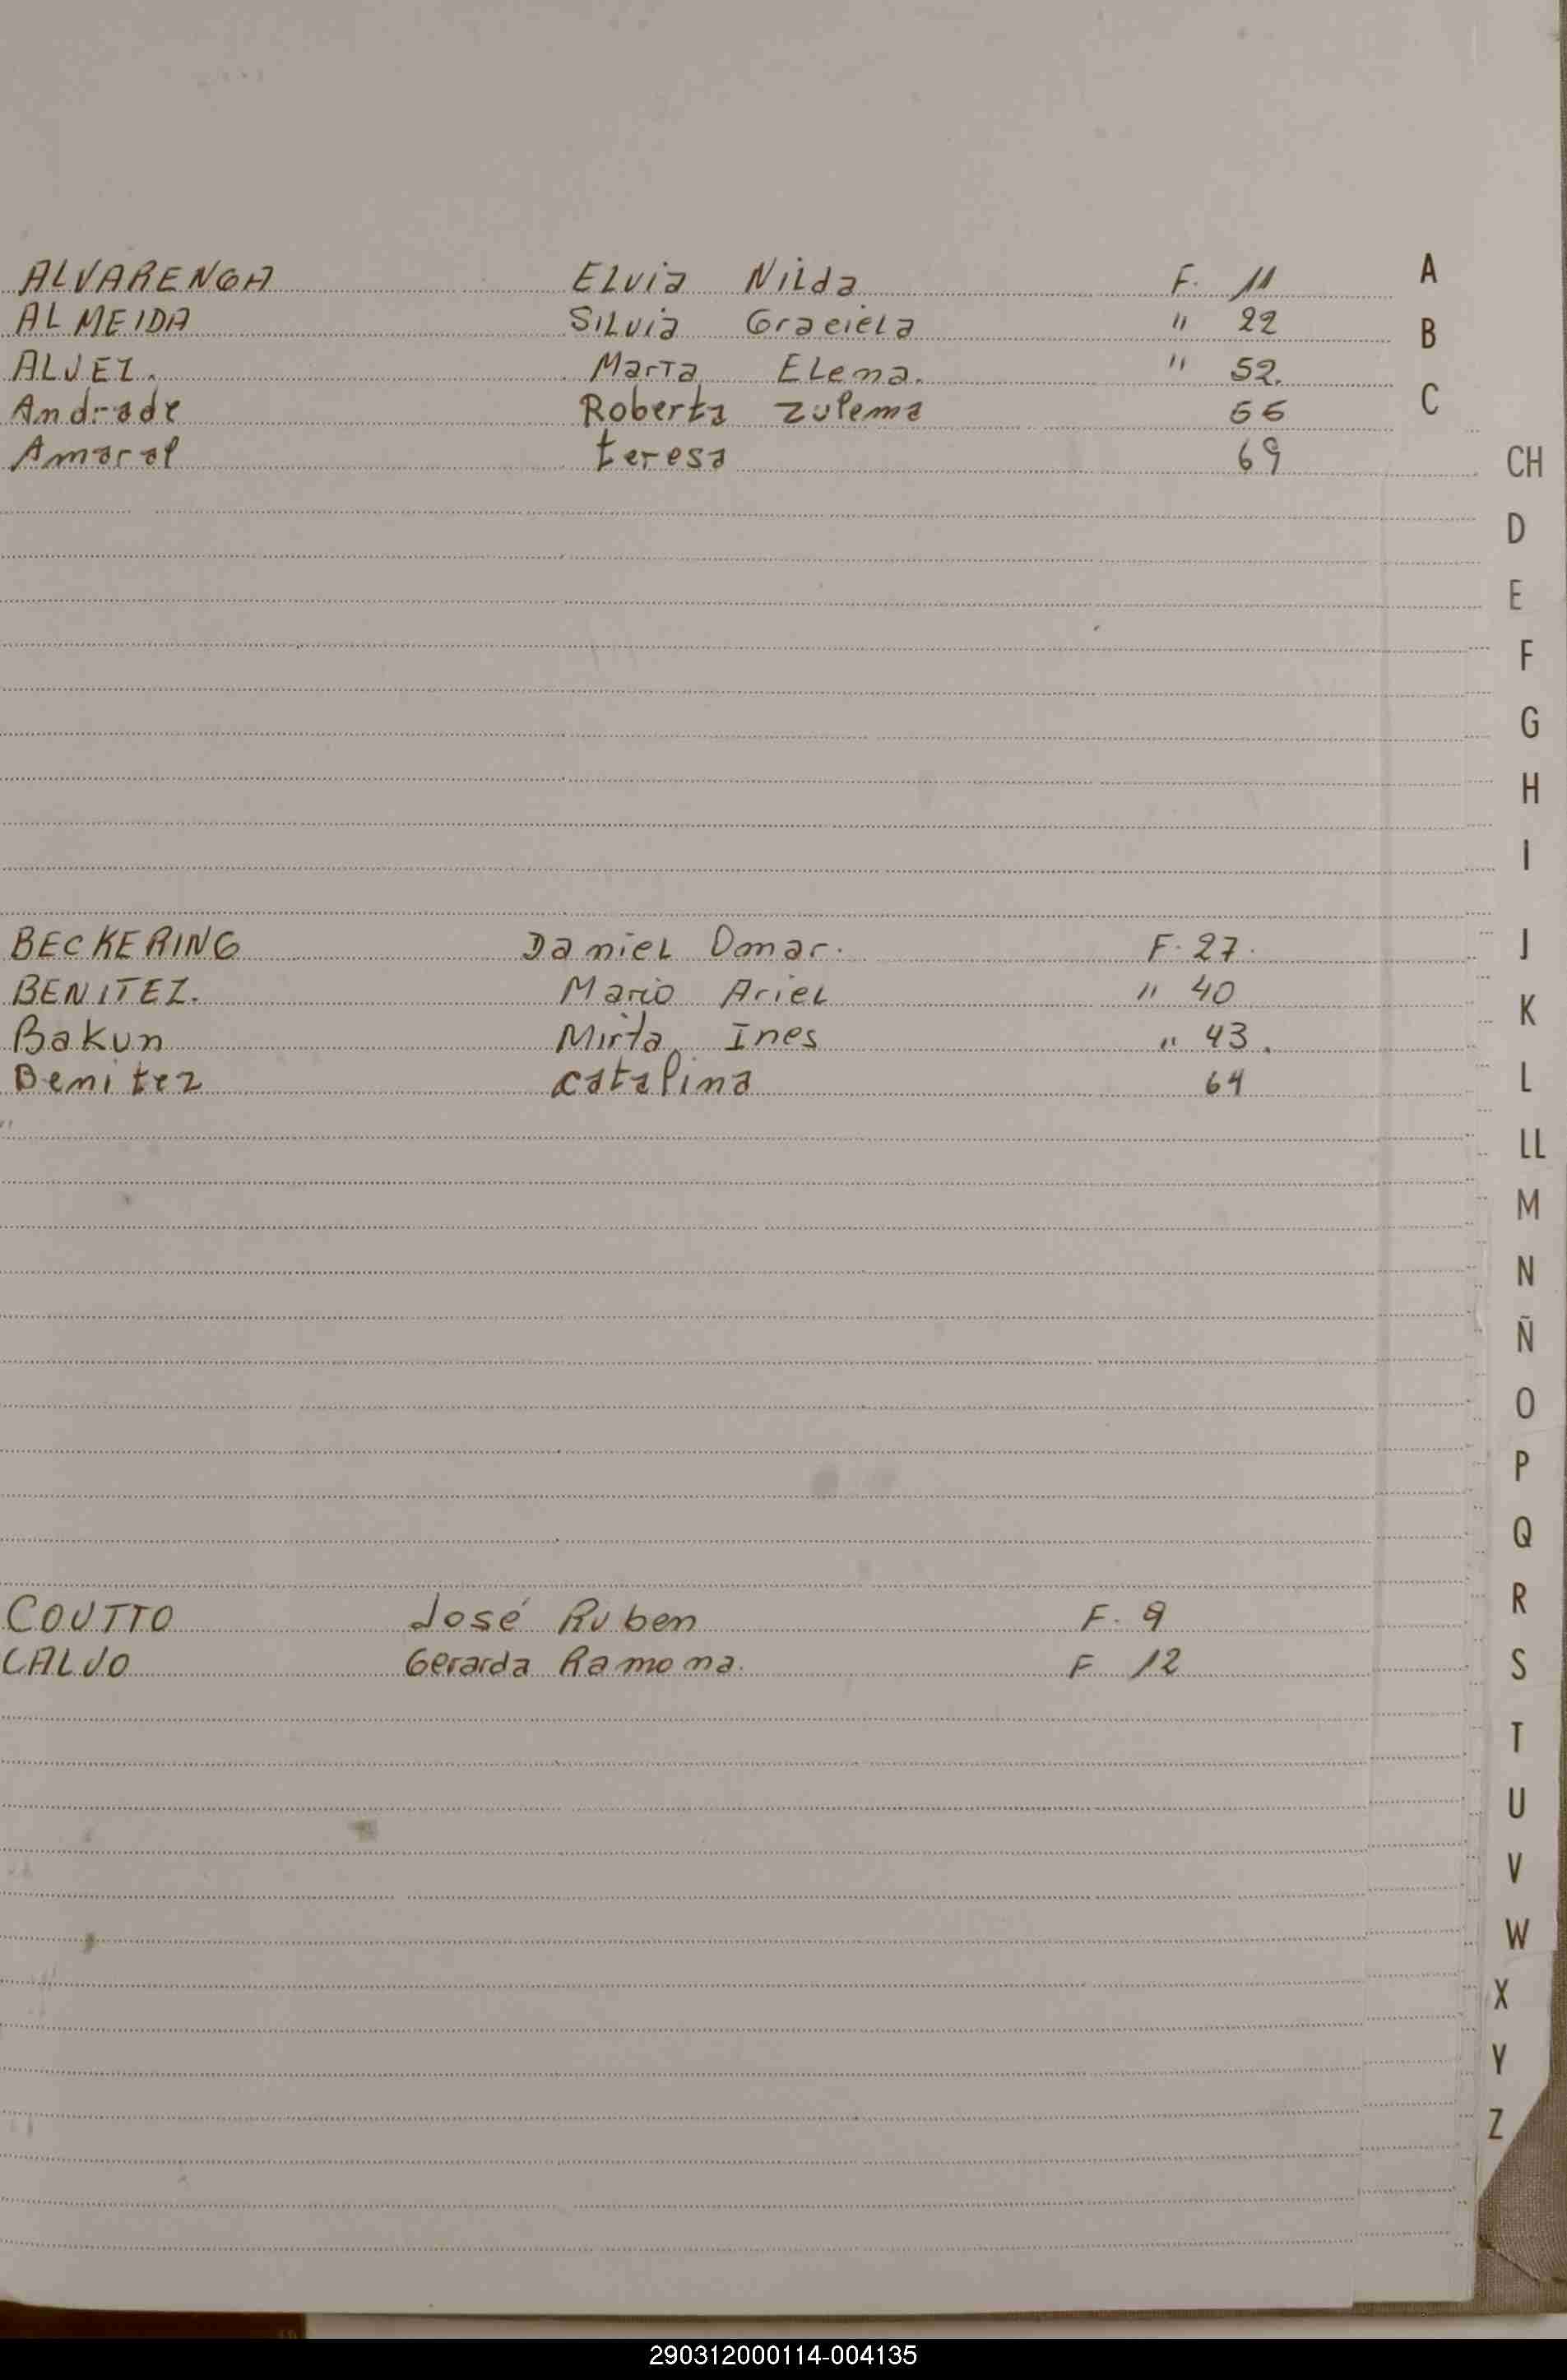 ALVARENGA Elvia Nilda F. 11 A
ALMEIDA Silvia Graciela " 22 B
ALVEZ. Marta Elena. " 52.
Andrade Roberta Zulema 66 C
Amaral teresa 69 CH
D
E
F
G
H
I
BECKERING Daniel Omar. F. 27. J
BENITEZ. Mario Ariel " 40 K
Bakun Mirta Ines " 43.
Benitez catalina 64 L
LL
M
N
Ñ
O
P
Q
COUTTO José Ruben F. 9 R
CALVO Gerarda Ramona. F 12 S
T
U
V
W
X
Y
Z
290312000114-004135